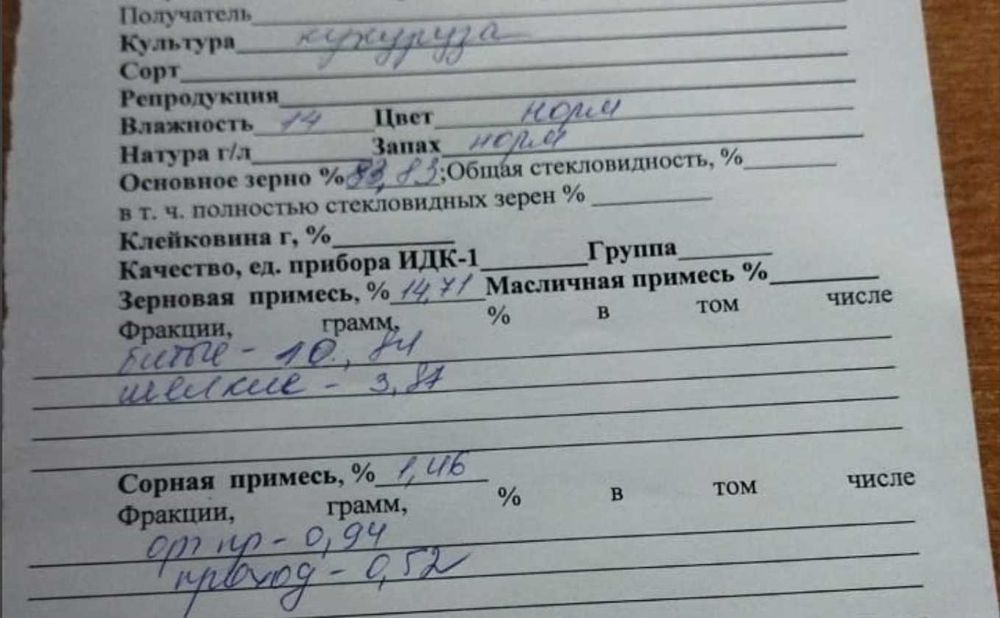 Получатель
Культура кукуруза
Сорт
Репродукция
Влажность 14 Цвет норм
Натура г/л Запах норм
Основное зерно % 83,83; Общая стекловидность, %
в т. ч. полностью стекловидных зерен %
Клейковина г, %
Качество, ед. прибора ИДК-1 Группа
Зерновая примесь, % 14,71 Масличная примесь %
Фракции, грамм, % в том числе
битые - 10,84
мелкие - 3,87
Сорная примесь, % 1,46
Фракции, грамм, % в том числе
орг пр - 0,94
проход - 0,52